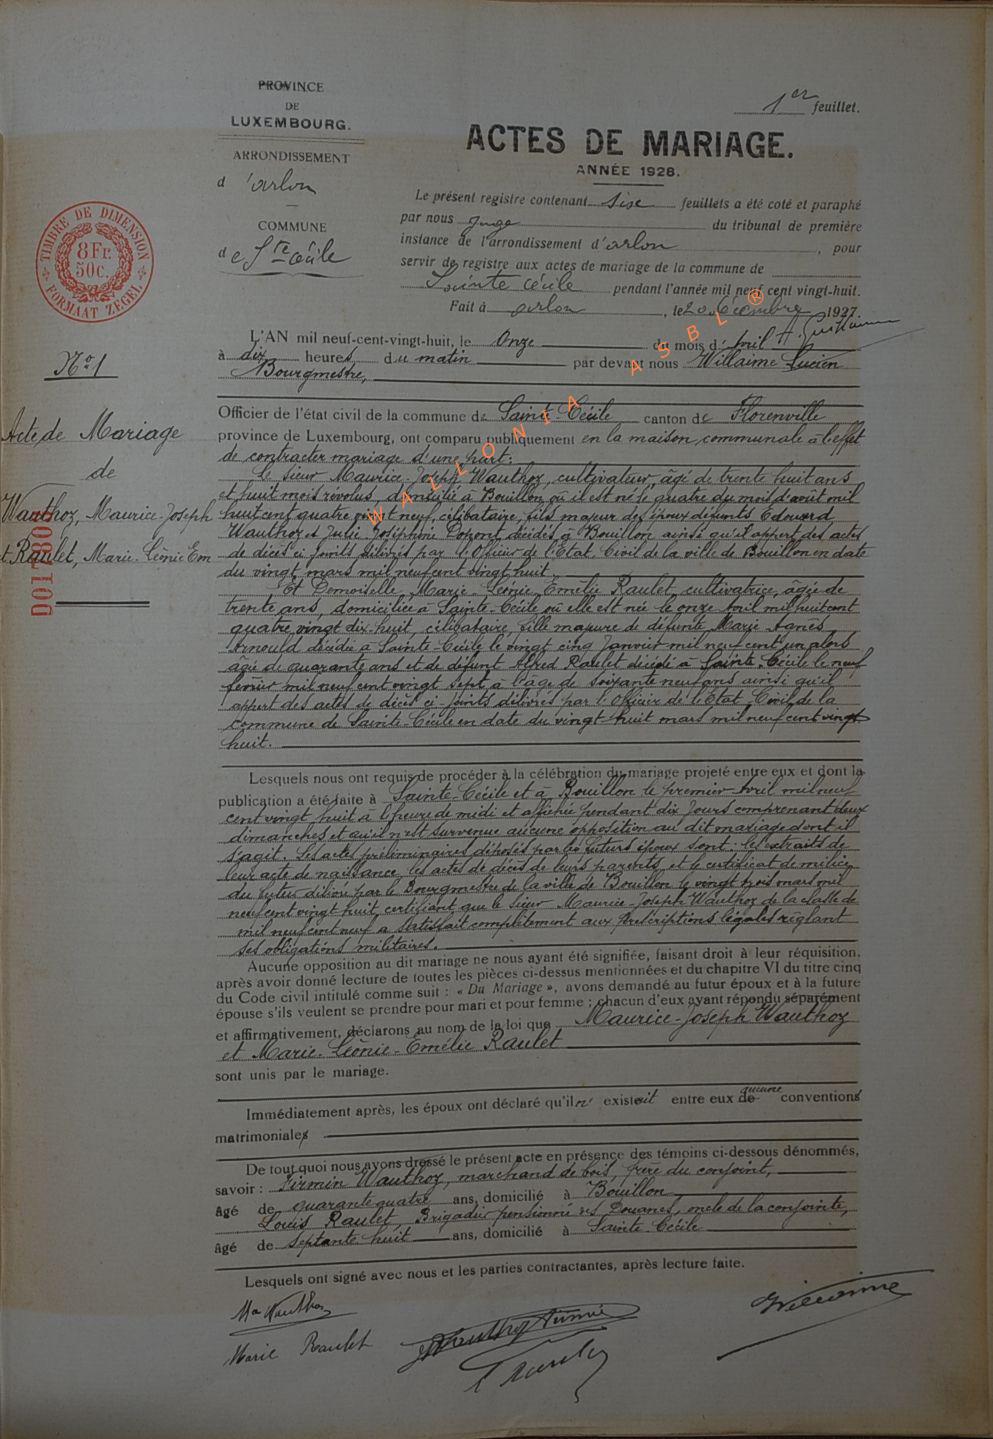 PROVINCE
DE
LUXEMBOURG.
ARRONDISSEMENT
d'Arlon
COMMUNE
de Ste Cécile
1er feuillet.
ACTES DE MARIAGE.
ANNÉE 1928.
Le présent registre contenant sixe feuillets a été coté et paraphé
par nous Juge du tribunal de première
instance de l'arrondissement d'arlon, pour
servir de registre aux actes de mariage de la commune de
Sainte Cécile pendant l'année mil neuf cent vingt-huit.
Fait à arlon, le 20 décembre 1927.
TIMBRE DE DIMENSION
8 Fr.
50 c.
FORMAAT ZEGEL
WALLONIA ASBL ®
No 1
Acte de Mariage
de
Wauthoz, Maurice-Joseph
et Raulet, Marie-Léonie Em
L'AN mil neuf-cent-vingt-huit, le Onze du mois d'Avril
à dix heures du matin par devant nous Willaime Lucien
Bourgmestre,
Officier de l'état civil de la commune de Sainte-Cécile canton de Florenville
province de Luxembourg, ont comparu publiquement en la maison communale à l'effet
de contracter mariage d'une part:
Le sieur Maurice-Joseph Wauthoz, cultivateur, âgé de trente huit ans
et huit mois révolus, domicilié à Bouillon où il est né le quatre du mois d'août mil
huit cent quatre vingt neuf, célibataire, fils majeur des époux défunts Edouard
Wauthoz et Julie Joséphine décédés à Bouillon ainsi qu'il appert des actes
de décès ci joints délivrés par l'Officier de l'Etat Civil de la ville de Bouillon en date
du vingt mars mil neuf cent vingt huit
Et Demoiselle Marie-Léonie Emélie Raulet, cultivatrice, âgée de
trente ans, domiciliée à Sainte-Cécile où elle est née le onze Avril mil huit cent
quatre vingt dix-huit, célibataire, fille majeure de défunte Marie Agnès
Arnould décédée à Sainte-Cécile le vingt cinq Janvier mil neuf cent un alors
âgée de quarante ans et de défunt Alfred Raulet décédé à Sainte-Cécile le neuf
février mil neuf cent vingt sept à l'âge de soixante neuf ans ainsi qu'il
appert des actes de décès ci-joints délivrés par l'Officier de l'Etat Civil de la
commune de Sainte-Cécile en date du vingt huit mars mil neuf cent vingt
huit.
Lesquels nous ont requis de procéder à la célébration du mariage projeté entre eux et dont la
publication a été faite à Sainte-Cécile et à Bouillon le premier Avril mil neuf
cent vingt huit à l'heure de midi et affichée pendant dix Jours comprenant deux
dimanches et qu'il n'est survenue aucune opposition au dit mariage dont il
s'agit. Les actes préliminaires déposés par les futurs époux sont: les extraits de
leur acte de naissance, les actes de décès de leurs parents, et le certificat de milice
du futur délivré par le Bourgmestre de la ville de Bouillon le vingt trois mars mil
neuf cent vingt huit, certifiant que le sieur Maurice-Joseph Wauthoz de la classe de
mil neuf cent neuf a satisfait complètement aux prescriptions légales réglant
ses obligations militaires.
Aucune opposition au dit mariage ne nous ayant été signifiée, faisant droit à leur réquisition,
après avoir donné lecture de toutes les pièces ci-dessus mentionnées et du chapitre VI du titre cinq
du Code civil intitulé comme suit : « Du Mariage », avons demandé au futur époux et à la future
épouse s'ils veulent se prendre pour mari et pour femme ; chacun d'eux ayant répondu séparément
et affirmativement, déclarons au nom de la loi que Maurice-Joseph Wauthoz
et Marie-Léonie-Emélie Raulet
sont unis par le mariage.
Immédiatement après, les époux ont déclaré qu'il n'existait entre eux de aucune conventions
matrimoniales
De tout quoi nous avons dressé le présent acte en présence des témoins ci-dessous dénommés,
savoir : Firmin Wauthoz, marchand de bois, frère du conjoint,
âgé de quarante quatre ans, domicilié à Bouillon
Louis Raulet, Brigadier pensionné des Douanes, oncle de la conjointe,
âgé de septante huit ans, domicilié à Sainte-Cécile
Lesquels ont signé avec nous et les parties contractantes, après lecture faite.
Ma Wauthoz
Marie Raulet
Wauthoz Firmin
Willaime